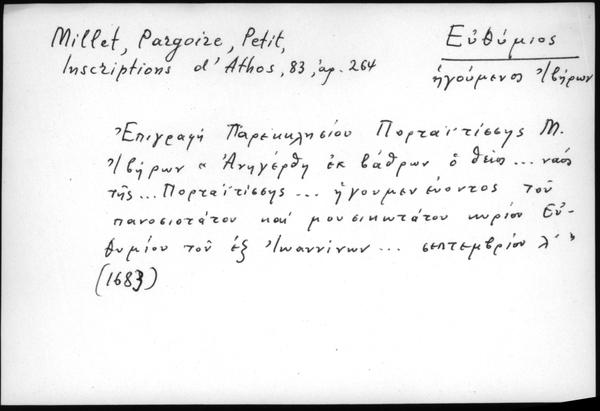 Millet, Pargoire, Petit,
Inscriptions d'Athos, 83, ἀρ. 264
Εὐθύμιος
ἡγούμενος Ἰβήρων
Ἐπιγραφή Παρεκκλησίου Πορταϊτίσσης Μ.
Ἰβήρων « Ἀνηγέρθη ἐκ βάθρων ὁ θεῖος ... ναός
τῆς ... Πορταϊτίσσης ... ἡγουμενεύοντος τοῦ
πανοσιοτάτου καί μουσικωτάτου κυρίου Εὐ-
θυμίου τοῦ ἐξ Ἰωαννίνων ... σεπτεμβρίου λ´ »
(1683)